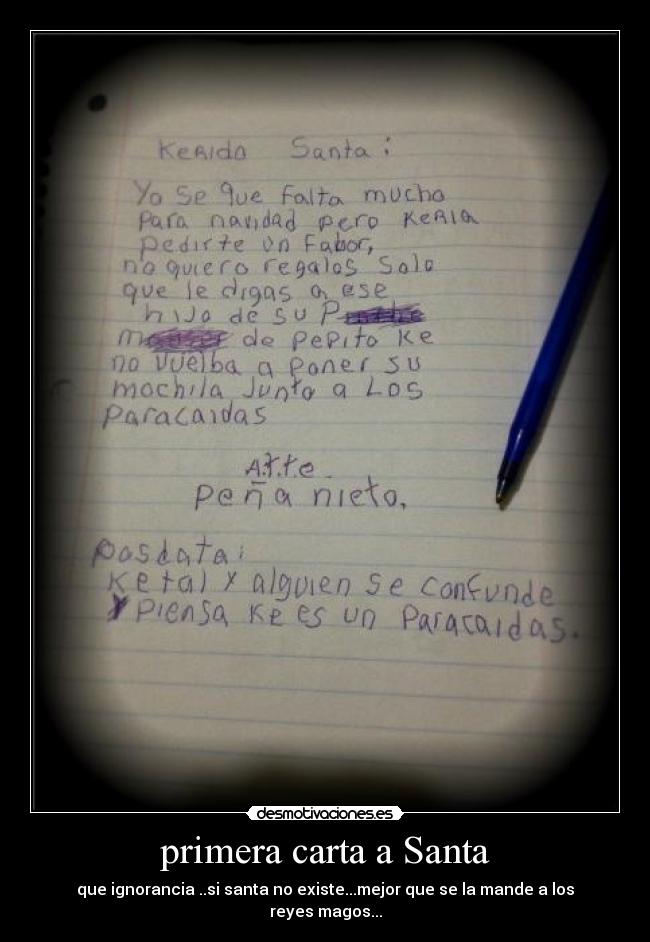 Kerido Santa:
Yo se que falta mucho
para navidad pero keria
pedirte un fabor,
no quiero regalos solo
que le digas a ese
hijo de su
de pepito ke
no vuelba a poner su
mochila junto a los
paracaidas
A.t.t.e
peña nieto.
posdata:
ke tal y alguien se confunde
y piensa ke es un paracaidas.
desmotivaciones.es
primera carta a Santa
que ignorancia ..si santa no existe...mejor que se la mande a los
reyes magos...